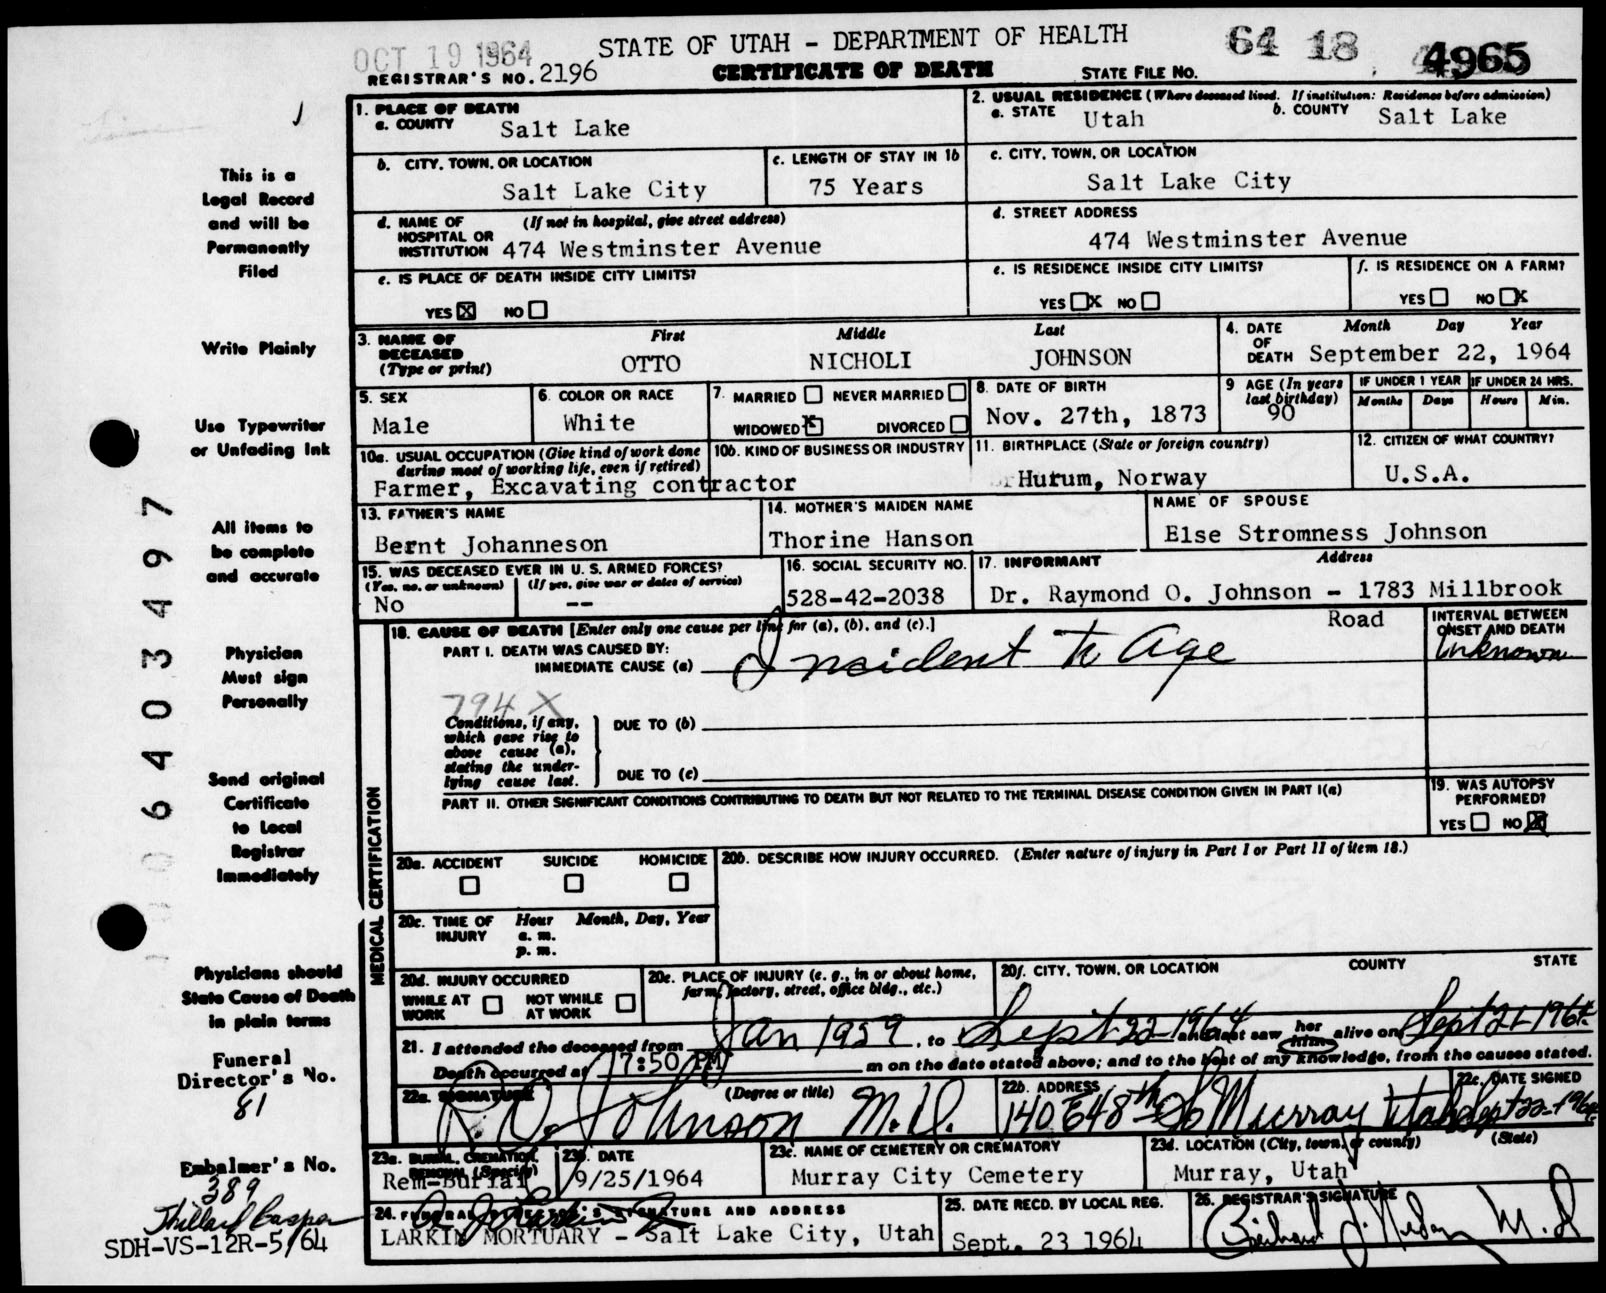 OCT 19 1964
STATE OF UTAH - DEPARTMENT OF HEALTH
64 18 4965
REGISTRAR'S NO. 2196
CERTIFICATE OF DEATH
STATE FILE NO.
1. PLACE OF DEATH
a. COUNTY Salt Lake
2. USUAL RESIDENCE (Where deceased lived. If institution: Residence before admission)
a. STATE Utah b. COUNTY Salt Lake
b. CITY, TOWN, OR LOCATION
Salt Lake City
c. LENGTH OF STAY IN 1b
75 Years
c. CITY, TOWN, OR LOCATION
Salt Lake City
d. NAME OF HOSPITAL OR INSTITUTION (If not in hospital, give street address)
474 Westminster Avenue
d. STREET ADDRESS
474 Westminster Avenue
e. IS PLACE OF DEATH INSIDE CITY LIMITS?
YES X NO
e. IS RESIDENCE INSIDE CITY LIMITS?
YES X NO
f. IS RESIDENCE ON A FARM?
YES NO X
3. NAME OF DECEASED (Type or print)
First Middle Last
OTTO NICHOLI JOHNSON
4. DATE OF DEATH
Month Day Year
September 22, 1964
5. SEX
Male
6. COLOR OR RACE
White
7. MARRIED NEVER MARRIED
WIDOWED X DIVORCED
8. DATE OF BIRTH
Nov. 27th, 1873
9 AGE (In years last birthday)
90
IF UNDER 1 YEAR
Months Days
IF UNDER 24 HRS.
Hours Min.
10a. USUAL OCCUPATION (Give kind of work done during most of working life, even if retired)
10b. KIND OF BUSINESS OR INDUSTRY
Farmer, Excavating contractor
11. BIRTHPLACE (State or foreign country)
Hurum, Norway
12. CITIZEN OF WHAT COUNTRY?
U.S.A.
13. FATHER'S NAME
Bernt Johanneson
14. MOTHER'S MAIDEN NAME
Thorine Hanson
NAME OF SPOUSE
Else Stromness Johnson
15. WAS DECEASED EVER IN U. S. ARMED FORCES?
(Yes, no, or unknown) (If yes, give war or dates of service)
No --
16. SOCIAL SECURITY NO.
528-42-2038
17. INFORMANT Address
Dr. Raymond O. Johnson - 1783 Millbrook
Road
MEDICAL CERTIFICATION
18. CAUSE OF DEATH [Enter only one cause per line for (a), (b), and (c).]
PART I. DEATH WAS CAUSED BY:
IMMEDIATE CAUSE (a) Incident to Age
INTERVAL BETWEEN ONSET AND DEATH
Unknown
794 X
Conditions, if any, which gave rise to above cause (a), stating the underlying cause last.
DUE TO (b)
DUE TO (c)
PART II. OTHER SIGNIFICANT CONDITIONS CONTRIBUTING TO DEATH BUT NOT RELATED TO THE TERMINAL DISEASE CONDITION GIVEN IN PART I(a)
19. WAS AUTOPSY PERFORMED?
YES NO X
20a. ACCIDENT SUICIDE HOMICIDE
20b. DESCRIBE HOW INJURY OCCURRED. (Enter nature of injury in Part I or Part II of item 18.)
20c. TIME OF INJURY Hour Month, Day, Year
a. m.
p. m.
20d. INJURY OCCURRED
WHILE AT WORK NOT WHILE AT WORK
20e. PLACE OF INJURY (e. g., in or about home, farm, factory, street, office bldg., etc.)
20f. CITY, TOWN, OR LOCATION COUNTY STATE
21. I attended the deceased from Jan 1959, to Sept 22 1964 and last saw her him alive on Sept 21 1964.
Death occurred at 7:50 PM m on the date stated above; and to the best of my knowledge, from the causes stated.
22a. SIGNATURE (Degree or title)
R. O. Johnson M.D.
22b. ADDRESS
140 E 48th So Murray Utah
22c. DATE SIGNED
Sept 22-1964
23a. BURIAL, CREMATION, REMOVAL (Specify)
Rem-Burial
23b. DATE
9/25/1964
23c. NAME OF CEMETERY OR CREMATORY
Murray City Cemetery
23d. LOCATION (City, town, or county) (State)
Murray, Utah
24. FUNERAL DIRECTOR'S SIGNATURE AND ADDRESS
LARKIN MORTUARY - Salt Lake City, Utah
25. DATE RECD. BY LOCAL REG.
Sept. 23 1964
26. REGISTRAR'S SIGNATURE
M.D
This is a
Legal Record
and will be
Permanently
Filed
Write Plainly
Use Typewriter
or Unfading Ink
All items to
be complete
and accurate
Physician
Must sign
Personally
Send original
Certificate
to Local
Registrar
Immediately
Physicians should
State Cause of Death
in plain terms
Funeral
Director's No.
81
Embalmer's No.
389
SDH-VS-12R-5/64
006403497